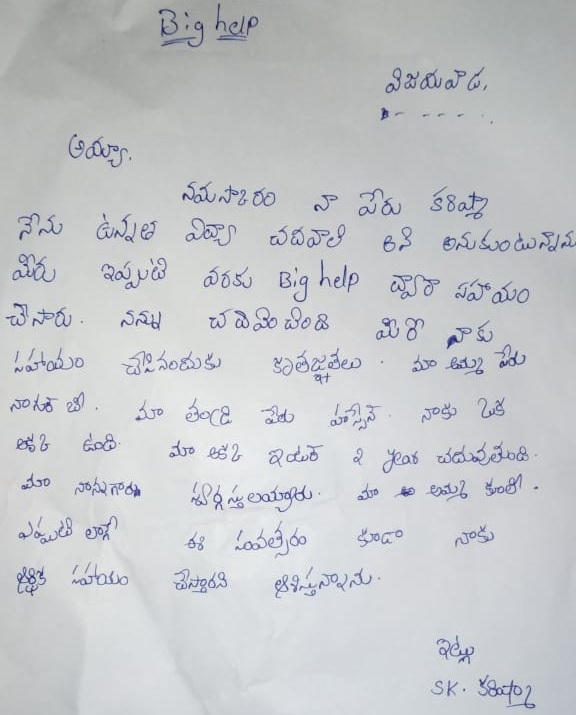 Big help
విజయవాడ,
అయ్యా.
నమస్కారం నా పేరు కరిష్మా
నేను ఉన్నత విద్యా చదవాలి అని అనుకుంటున్నాను
మీరు ఇప్పటి వరకు Big help ద్వారా సహాయం
చేసారు. నన్ను చదివించండి మీరు నాకు
సహాయం చేసినందుకు కృతజ్ఞతలు. మా అమ్మ పేరు
నాగుర్ బీ. మా తండ్రి పేరు హుస్సేన్. నాకు ఒక
అక్క ఉంది. మా అక్క ఇంటర్ 2 year చదువుతుంది.
మా నాన్నగారు స్వర్గస్తులయ్యారు. మా అమ్మ కూలీ.
ఎప్పటి లాగే ఈ సంవత్సరం కూడా నాకు
ఆర్థిక సహాయం చేస్తారని ఆశిస్తున్నాను.
ఇట్లు
SK. కరిష్మా